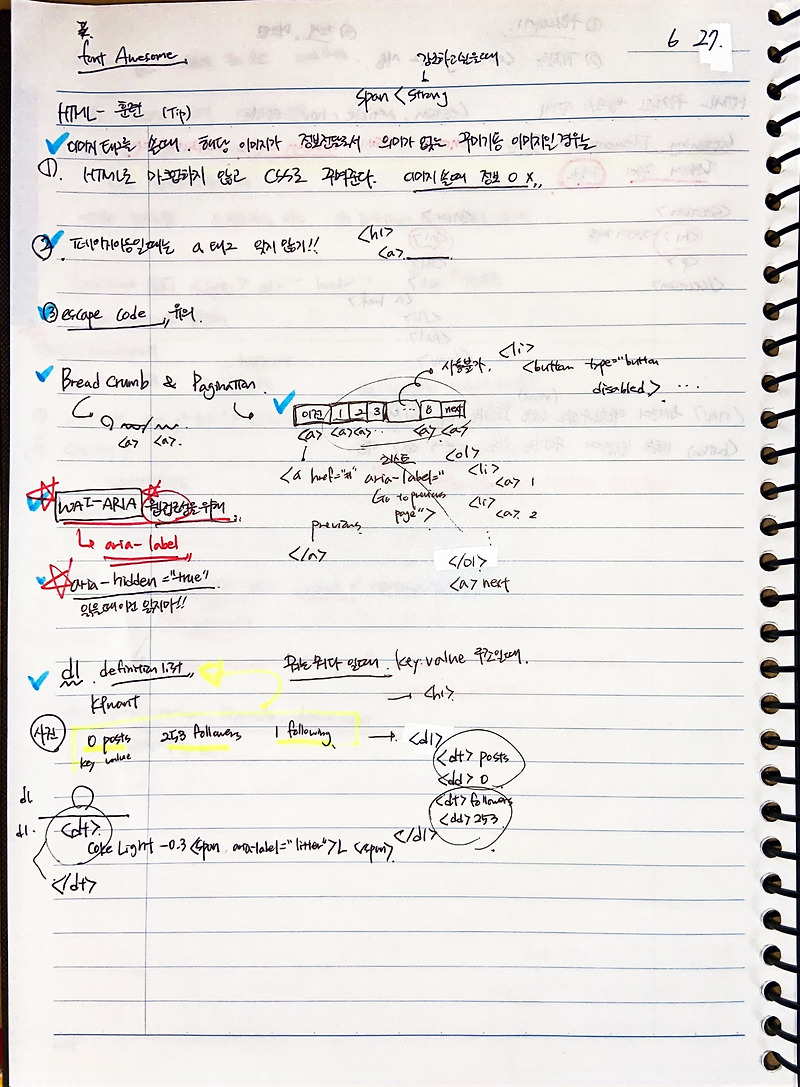 6 27.
font Awesome
강조하고싶을때
span < strong
HTML- 훈련 (Tip)
이미지 태그를 쓸때 해당 이미지가 정보전달로서 의미가 없는 꾸미기용 이미지인 경우는
① HTML로 마크업하지 않고 CSS로 꾸며준다. 이미지 쓸때 정보 O X
② 페이지이동일때는 a 태그 잊지 않기!!
<h1>
<a>
③ escape code 유의.
Bread crumb & Pagination
<a> <a>.
이전 1 2 3 ... 8 next
<a> <a><a>... <a> <a>
사용불가.
<li>
<button type="button
disabled> ...
<a href="#" aria-label="
Go to previous
page">
previous
</a>
리스트
<ol>
<li>
<a> 1
<li>
<a> 2
</ol>
<a> next
WAI-ARIA 웹접근성을 위해
aria-label
aria-hidden="true"
읽을때 이건 읽지마!!
dl definition list
뭐는 뭐다 일때. key:value 구조일때.
<h1>
사전
0 posts 253 followers 1 following
key value
<dl>
<dt> posts
<dd> 0
<dt> followers
<dd> 253
</dl>
dl
dl.
<dt>
Coke Light -0.3 <span aria-label="litter">L </span>
</dt>